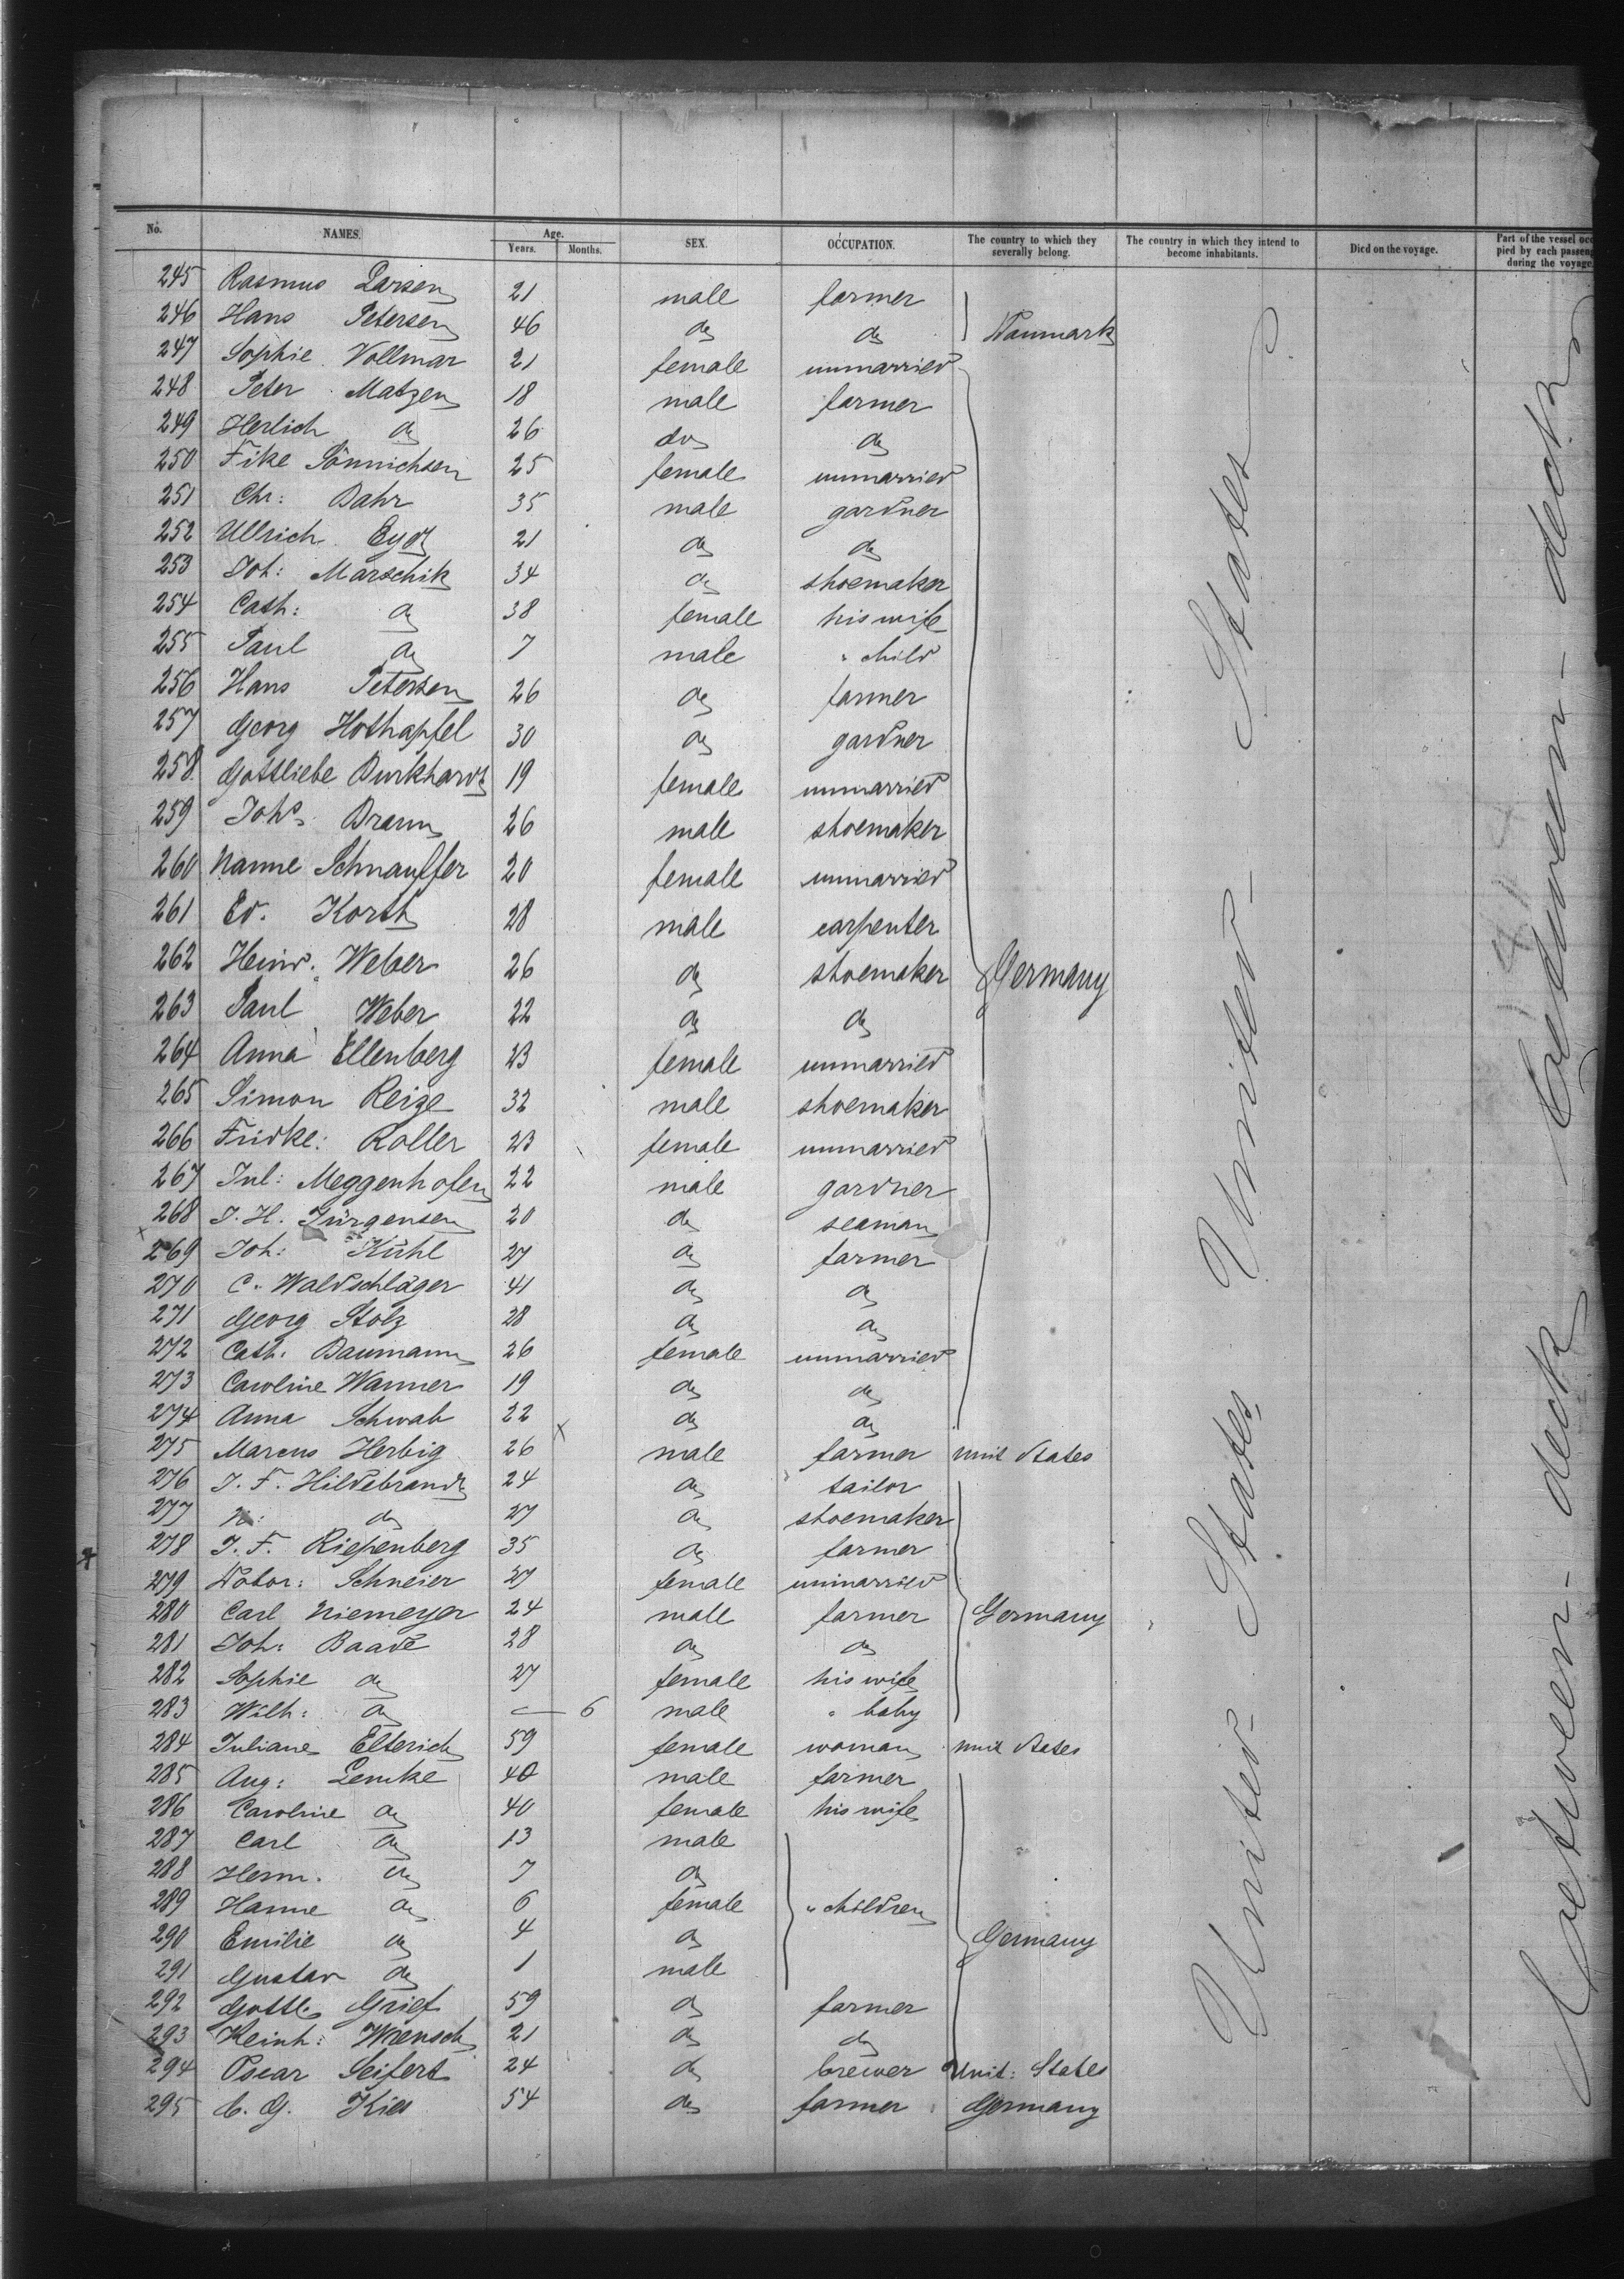 No. NAMES. Age. Years. Months. SEX. OCCUPATION. The country to which they severally belong. The country in which they intend to become inhabitants. Died on the voyage. Part of the vessel occupied by each passenger during the voyage.
245 Rasmus Larsen 21 male farmer
246 Hans Petersen 46 do do Danmark
247 Sophie Vollmar 21 female unmarried
248 Peter Matzen 18 male farmer
249 Herlich do 26 do do
250 Fike Sönnichsen 25 female unmarried
251 Chr: Bahr 35 male gardner
252 Ullrich 21 do do
253 Joh: Marschik 34 do shoemaker
254 Cath: do 38 female his wife
255 Paul do 7 male " child
256 Hans Petersen 26 do farmer
257 Georg Hothapfel 30 do gardner
258 Gottliebe Burkhardt 19 female unmarried
259 Johs. Braun 26 male shoemaker
260 Nanne Schnauffer 20 female unmarried
261 Ed. Korth 28 male carpenter
262 Heinr. Weber 26 do shoemaker Germany
263 Paul Weber 22 do do
264 Anna Ellenberg 23 female unmarried
265 Simon Reize 32 male shoemaker
266 Fridke: Roller 23 female unmarried
267 Jul: Meggenhofen 22 male gardner
268 J. H. Jürgensen 20 do seaman
269 Joh: Kühl 27 do farmer
270 C. Waldschläger 41 do do
271 Georg Stolz 28 do do
272 Cath. Baumann 26 female unmarried
273 Caroline Wanner 19 do do
274 Anna Schwab 22 do do
275 Marcus Herbig 26 male farmer Unit States
276 J. F. Hildebrandt 24 do tailor
277 do 27 do shoemaker
278 J. F. Riepenberg 35 do farmer
279 Dobor: Schneier 27 female unmarried
280 Carl Niemeyer 24 male farmer Germany
281 Joh: Baade 28 do do
282 Sophie do 27 female his wife
283 Wilh: do — 6 male " baby
284 Juliane Elterich 59 female woman Unit States
285 Aug: Lemke 40 male farmer
286 Caroline do 40 female his wife
287 Carl do 13 male
288 Herm. do 7 do
289 Hanne do 6 female " children
290 Emilie do 4 do Germany
291 Gustav do 1 male
292 Gottl. Grief 59 do farmer
293 Reinh: Wiensch 21 do do
294 Oscar Seifert 24 do brewer Unit: States
295 C. G. Kies 54 do farmer Germany
United States United States
Between deck Between deck